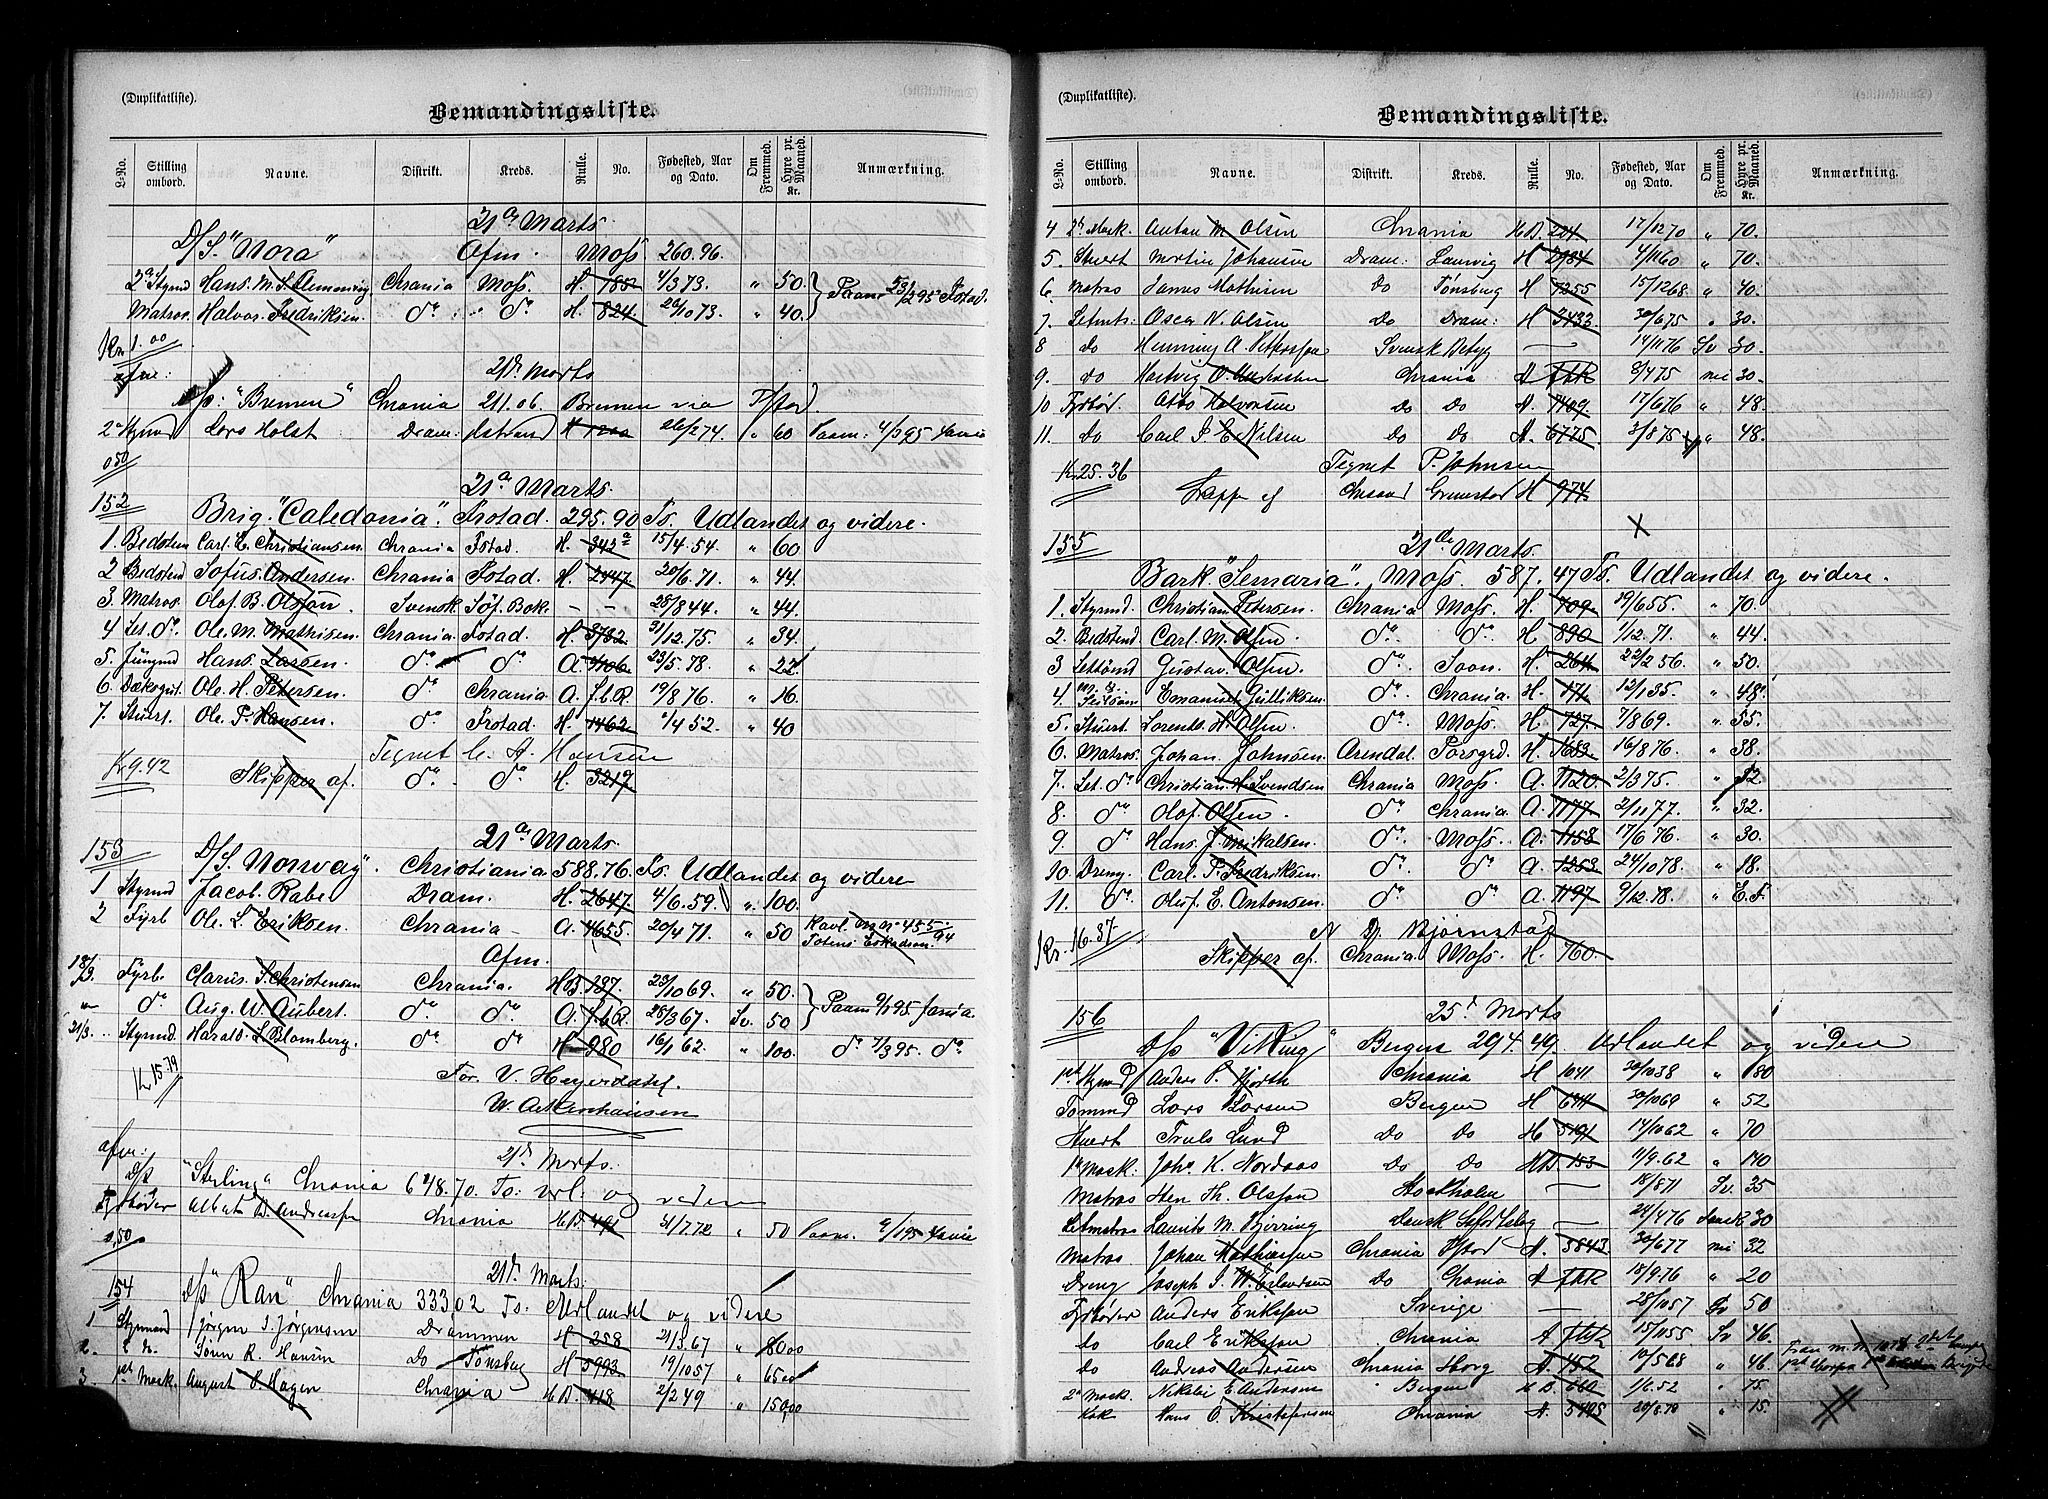 (Duplikatliste).
Bemandingsliste.
L-No. Stilling ombord. Navne. Distrikt. Kreds. Rulle. No. Fødested, Aar og Dato. Om Fremmed. Hyre pr. Maaned. Kr. Anmærkning.
21de Marts.
D/S. "Nora" Afm. Moss 260.96.
2d Styrmd Hans. M. S. Flemming Chrania Moss. H. 785 4/3 73. " 50.
Matros. Halvor Fredriksen. do do H. 824. 20/10 73. " 40.
Kr. 1.00
afm: 21de Marts
D/S: "Bremen" Chrania 211.06. Bremen via Fstad.
2d Styrmd Lars Holst Dram: H 26/2 74. " 60 Paam: 4/3 95
0.50
21de Marts.
152 Brig. "Caledonia". Frstad. 295.90 To. Udlandet og videre.
1. Bedstem Carl. E. Christiansen. Chrania Fstad. H. 343a 15/4.54. " 60
2 Bedstmd Sofus. Andersen. Chrania Frstad. H. 2447. 20/6.71. " 44.
3. Matros. Olof. B. Olsson. Svensk Søf. Bok. - - 28/8 44. " 44.
4 Let. do. Ole. M. Mathisen. Chrania. Frstad. H. 3782 31/12.75. " 34.
5. Jungmd Hans. Larsen. do do A. 23/5.78. " 22
6. Dæksgut. Ole. H. Petersen. do Chrania. A. f.b.R. 19/8 76. " 16.
7. Stuert. Ole. P. Hansen. do. Frstad. H. 1462 4/4 52. " 40
Tegnet C. A. Hansen
Kr 9.42 Skipper af. do do H. 3217
21de Marts.
153 D/S. "Norway". Christiania 588.76. To. Udlandet og videre
1 Styrmd Jacob. Rabe Dram. H. 2647. 4/6.59. " 100.
2 Fyrb Ole. L. Eriksen. Chrania - A. 4655. 20/4 71. " 50
Afm.
18/3. Fyrb. Clarus. S. Christensen Chrania. HB. 187. 23/10 69. " 50.
" do. Aug. W. Aubert. do do A. f.b.R. 26/3 67. Sv. 50
21/3. Styrmd. Harald. S. Blomberg. do do H 980 16/1 62. " 100. do 7/3 95. do
Kr 15.79
For. V. Heyerdahl.
W. Ackenhausen
afm: 21de Marts.
D/S "Sterling" Chrania 648.70. To: url. og videre
Fyrbøder Albert B. Andreassen Chrania H.B. 491 31/7.72 " 50 Paam.
0,50
21de Marts.
154 D/S "Ran" Chrania 333.02 To: Udlandet og videre
1 Styrmand Jørgen S. Jørgensen Drammen H 258 21/3.67 " 80.00
2. Sören R. Hansen Do Tønsbug H 5993 19/10 57 " 65.00
3. 1st Mask. August P. Hagen Chrania H.B. 418 2/2 49 " 150,00
(Duplikatliste).
Bemandingsliste.
L-No. Stilling ombord. Navne. Distrikt. Kreds. Rulle. No. Fødested, Aar og Dato. Om Fremmed. Hyre pr. Maaned. Kr. Anmærkning.
4 2d Mask. Anton M. Olsen Chrania H.B. 224. 17/12 70 " 70.
5. Stuert Martin Johansen Dram: Laurvig H 2984 4/11 60 " 70.
6. Matros James Mathisen Do Tønsberg H 7255 15/12 68 " 40.
7. Letmts: Oscar N. Olsen Do Dram: H 3433. 30/6 75 " 30.
8 do Henning A. Pettersson Svensk Betyg — 14/11 76 Sv 30.
9. do Hartvig O. Chrania A FBR 8/4 75 nei 30.
10 Fyrbød. Otto Halvorsen Do Do A. 7409. 17/6 76 " 48.
11. do Carl S. E. Nilsen Do Do A. 6775 3/8 75 " 48.
Tegnet P. Johnsen
Kr 25.36 Crsand Grimstad H 974.
155 21de Marts.
Bark. "Semaria". Moss. 587.47 To. Udlandet og videre.
1. Styrmd. Christian Petersen. Chrania Moss. H. 709. 19/6 55. " 70.
2. Bedstmd Carl. M. Olsen. do. do. H 890. 1/12.71. " 44.
3 Lettømd Gustav. Olsen. do. Soon. H. 264. 22/2 56. " 50.
4. Emanuel Gulliksen. do. Chrania. H. 171 12/1 35. " 48.
5. Stuert. Lorentz. H. Olsen. do Moss. H. 727. 7/8 69. " 55.
6. Matros Johan. Johnsen. Arendal. Porsgrd. H. 1683. 16/8 76. " 38.
7. Let. do Christian. H. Svendsen Chrania Moss. A. 1120. 2/3 75. " 32
8. do Olof. Olsen. do. Chrania A. 1177. 2/11 77. " 32.
9 do Hans. J. Mikalsen. do. Moss. A. 1158 17/6 76. " 30.
10. Dreng. Carl. P. Fredriksen. do. do A. 1253. 24/10 78. " 18.
11. do. Oluf. E. Antonsen. do do A. 1197 9/12.78. " E.F.
Kr. 16.37 N. D. Bjørnstad
Skipper af. Chrania. Moss. H. 760.
156 25d Marts
D/S "Viking" Bergen 294.49. Udlandet og videre
1st Styrmd Anders P. Hjorth Chrania H 1041 20/10 38 " 80
Tømmd Lars Larsen Bergen H 30/10 69 " 52
Stuert Truls Lund Do Do H 5191 14/10 62 " 70
1st Mask. Johs K. Nordaas Do Do H.B. 153 11/9.62 " 140
Matros Hen Th. Olsson Stockholm — 18/8 71 Sv. 35
Letmatros Laurits M. Bjørring Dansk — 24/4 76 Dansk 30
Matros Johan Mathiassen Chrania Fstad A. 3843 30/6 77 nei 32
Dreng Joseph S. W. Erlandsen Do Chrania A FBR 18/9.76 " 20
Fyrbøder Anders Eriksson Sverige — 28/10 57 Sv 50
do Carl Eriksson Chrania A FBR 15/11 55 Sv 46.
do Andreas Andersen Chrania A. 452 10/5 68 " 46
2d Mask. Nikolai E. Andersen Bergen H.B. 660 1/6.52 " 75.
Kok Hans O. Kristofersen Chrania A. 5495 30/8.79 " 15.